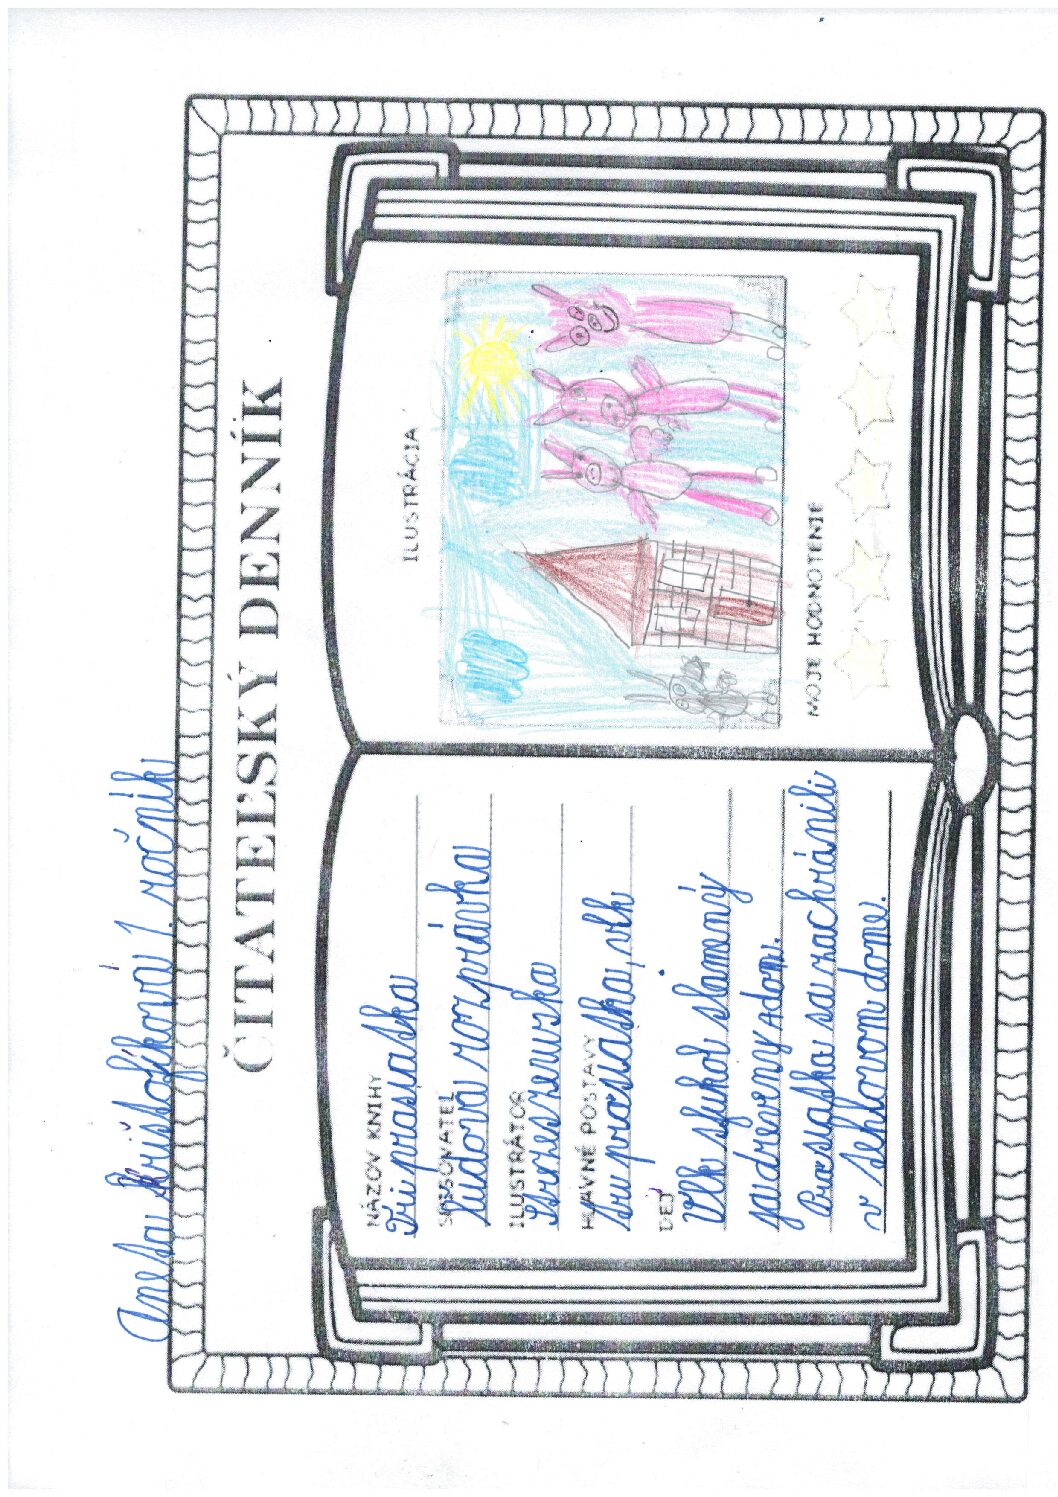 Aneta Krištofíková 1. ročník
ČITATEĽSKÝ DENNÍK
NÁZOV KNIHY
Tri prasiatka
SPISOVATEĽ
Ľudová rozprávka
ILUSTRÁTOR
HLAVNÉ POSTAVY
tri prasiatka, vlk
DEJ
Vlk sfukol slamený
drevený dom.
Prasiatka sa zachránili
v tehlovom dome.
ILUSTRÁCIA
MOJE HODNOTENIE